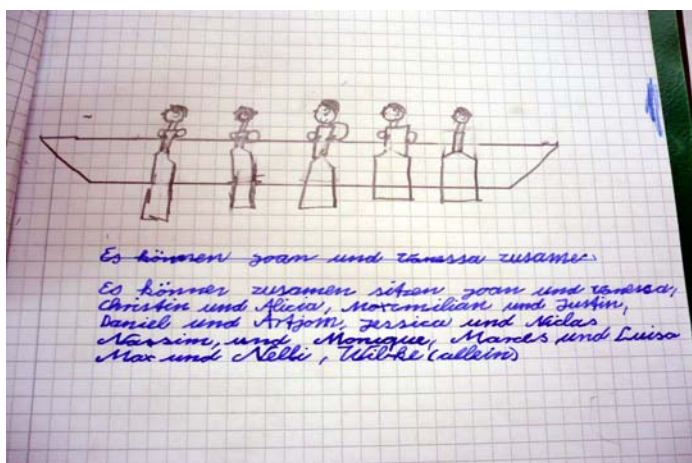 Es können Joan und Vanessa zusamme.
Es könner zusamen sitzen Joan und Vanessa,
Christin und Alicia, Maximilian und Justin,
Daniel und Artjom, Jessica und Niclas
Nassim, und Monique, Marces und Luisa
Max und Nelli, Wibke (allein)